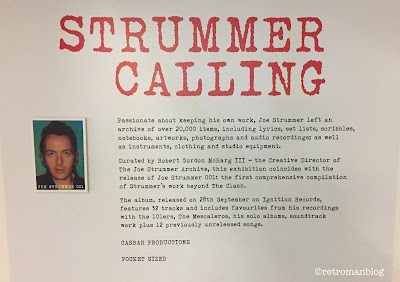 STRUMMER
CALLING
Passionate about keeping his own work, Joe Strummer left an
archive of over 20,000 items, including lyrics, set lists, scribbles,
notebooks, artworks, photographs and audio recordings; as well
as instruments, clothing and studio equipment.
Curated by Robert Gordon McHarg III – the Creative Director of
The Joe Strummer Archive, this exhibition coincides with the
release of Joe Strummer 001: the first comprehensive compilation
of Strummer's work beyond The Clash.
The album, released on 28th September on Ignition Records,
features 32 tracks and includes favourites from his recordings
with the 101ers, The Mescaleros, his solo albums, soundtrack
work plus 12 previously unreleased songs.
CASBAH PRODUCTIONS
POCKET SIZED
JOE STRUMMER 001
©retromanblog